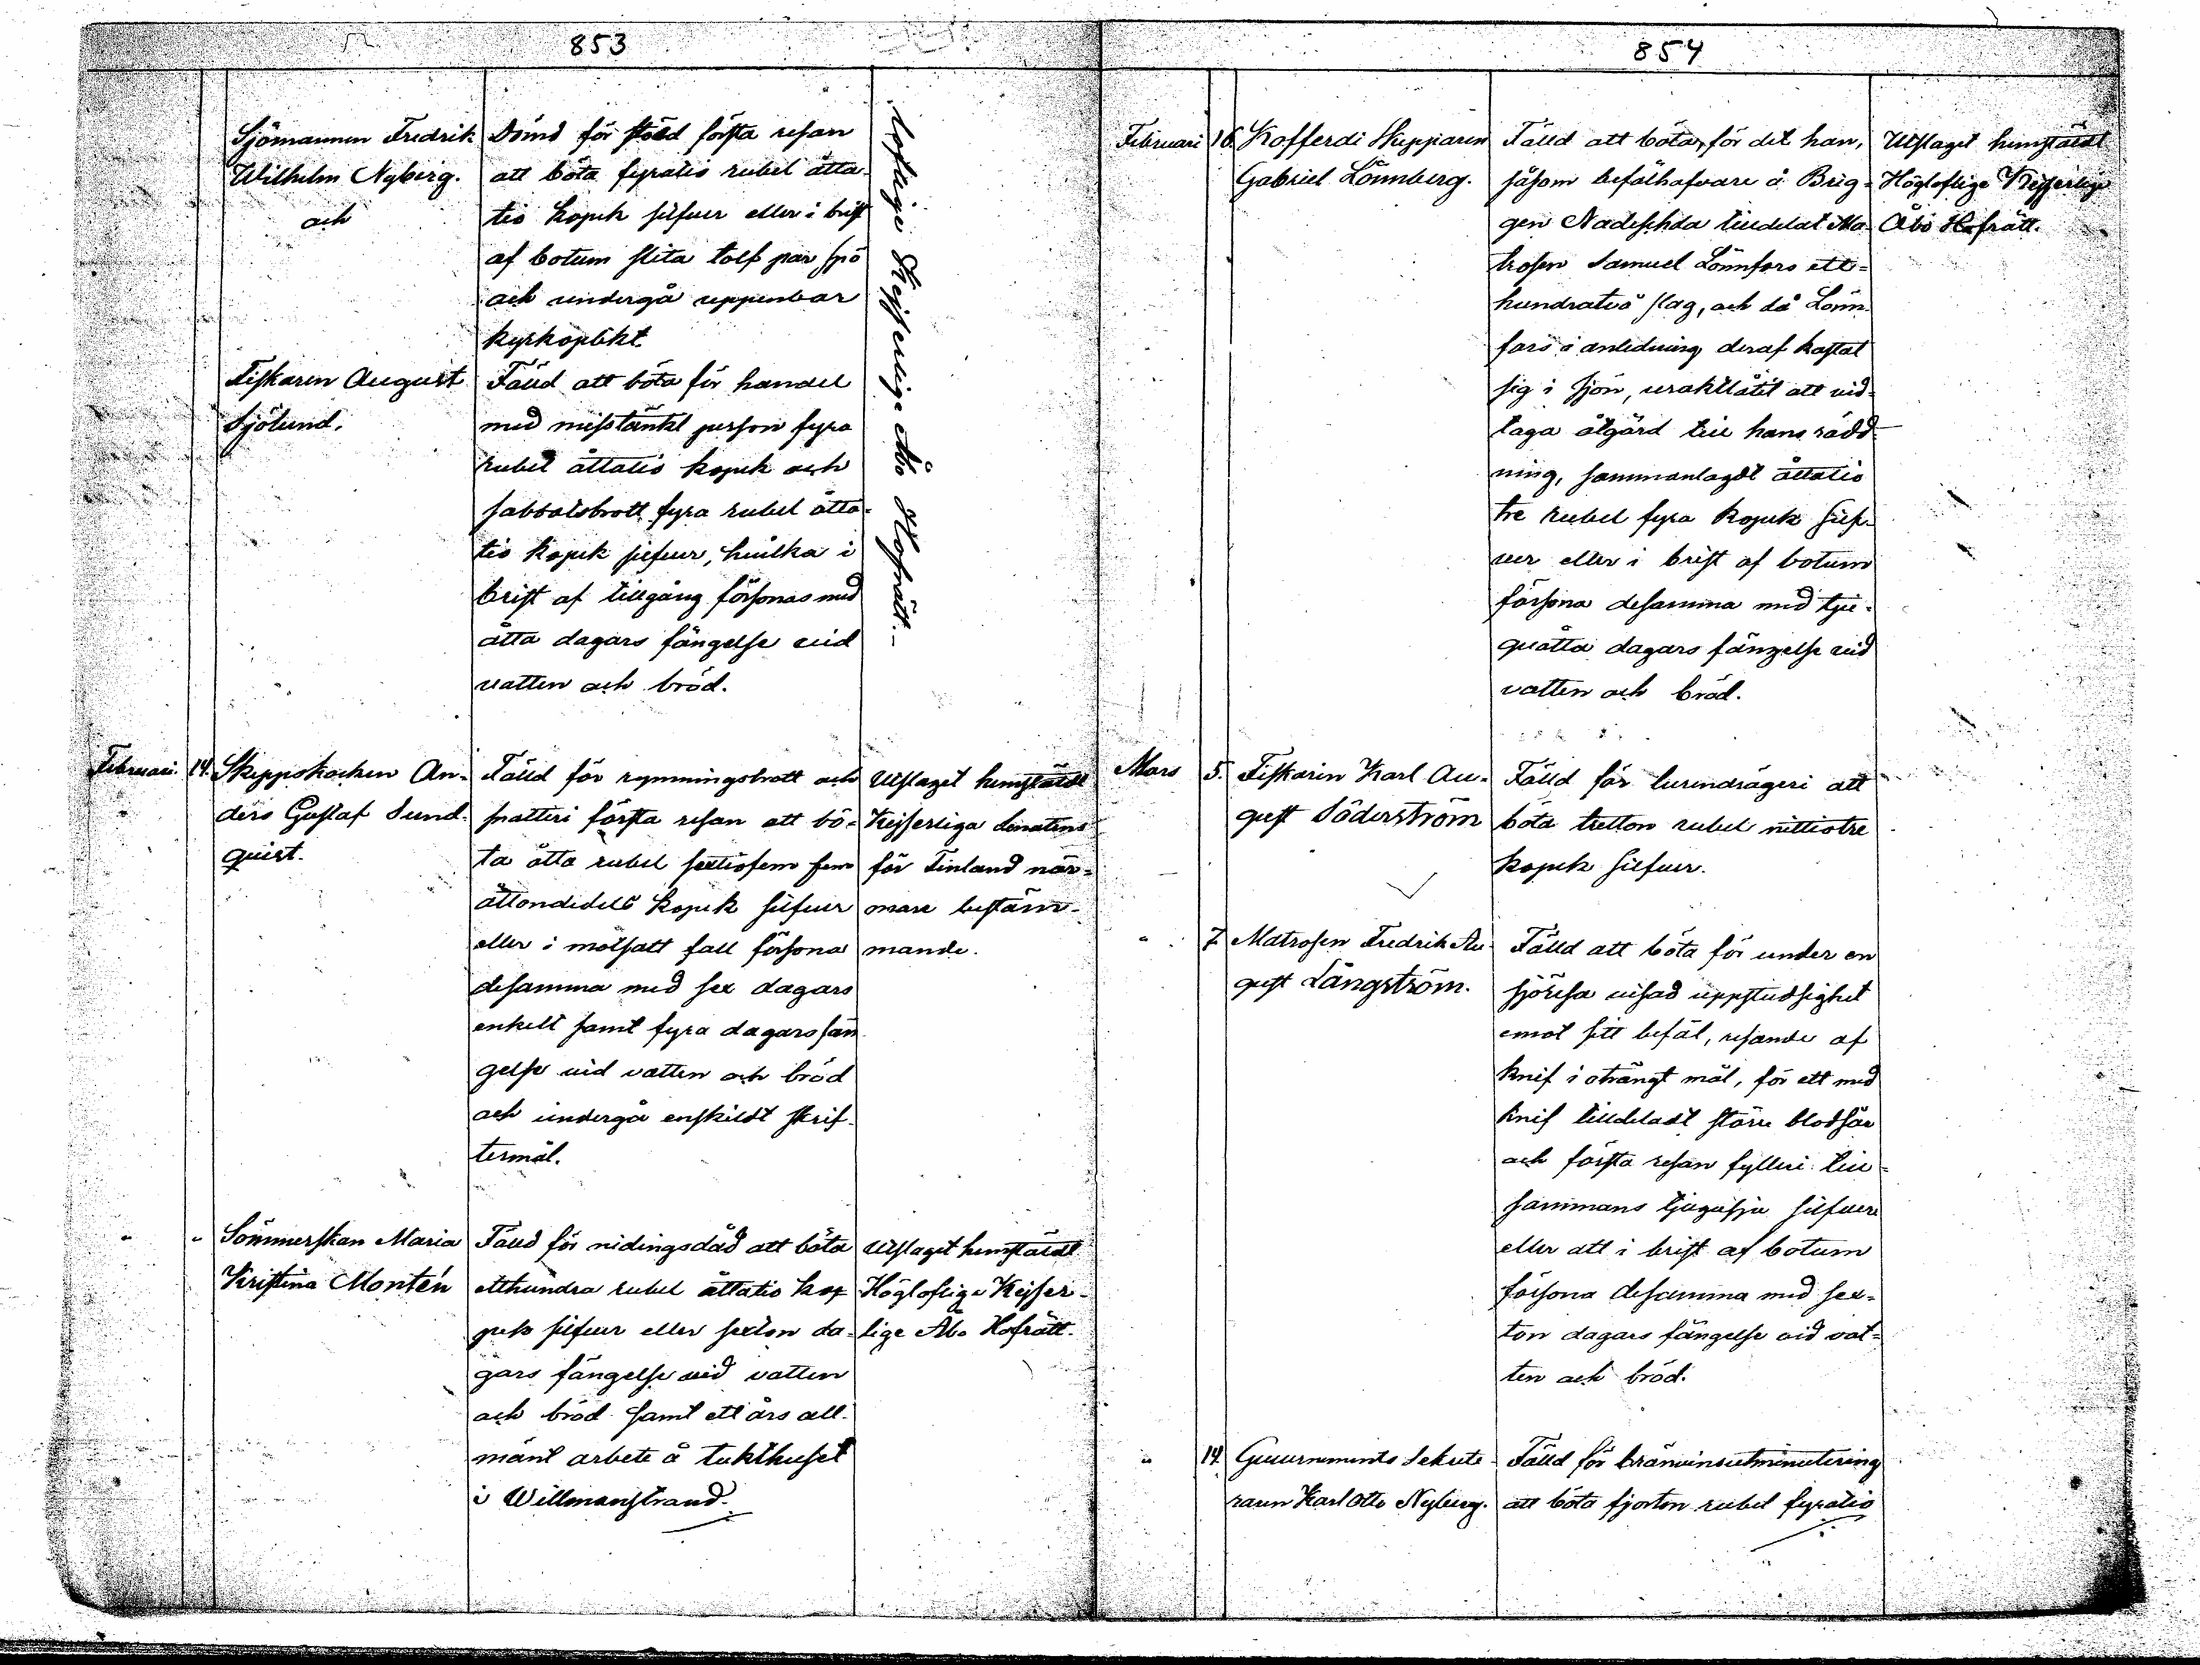 853
Sjömannen Fredrik
Wilhelm Nyberg.
och
Dömd för stöld första resan
att böta fyratio rubel åtta-
tio kopek silfver eller i brist
af botum slita tolf par spö
och undergå uppenbar
kyrkoplikt.
Fiskaren August
Sjölund.
Fälld att böta för handel
med misstänkt person fyra
rubel åttatio kopek och
sabbatsbrott fyra rubel åtta-
tio kopek silfver, hvilka i
brist af tillgång försonas med
åtta dagars fängelse vid
vatten och bröd.
loflige Kejserlige Åbo Hofrätt.
Februari. 14. Skeppskocken An-
ders Gustaf Sund-
qvist.
Fälld för rymningsbrott och
snatteri första resan att bö-
ta åtta rubel sextiofem fem
åttondedels kopek silfver
eller i motsatt fall försona
desamma med sex dagars
enkelt samt fyra dagars fän
gelse vid vatten och bröd
och undergå enskildt skrif-
termål.
Utslaget hemstäldt
Kejserliga Senatens
för Finland när-
mare bestäm-
mande.
" " Sömmerskan Maria
Kristina Montén
Fälld för nidingsdåd att böta
etthundra rubel åttatio ko=
pek silfver eller sexton da-
gars fängelse vid vatten
och bröd samt ett års all-
mänt arbete å tukthuset
i Willmanstrand.
Utslaget hemstäldt
Högloflige Kejser-
lige Åbo Hofrätt.
854
Februari 16. Kofferdi Skepparen
Gabriel Lönnberg.
Fälld att böta, för det han,
såsom befälhafvare å Brig-
gen Nadeschda tilldelat Ma-
trosen Samuel Lönnfors ett-
hundratvå slag, och då Lönn-
fors i anledning deraf kastat
sig i sjön, uraktlåtit att vid-
taga åtgärd till hans rädd-
ning, sammanlagdt åttatio
tre rubel fyra kopek silf-
ver eller i brist af botum
försona desamma med tju-
guåtta dagars fängelse vid
vatten och bröd.
Utslaget hemstäldt
Högloflige Kejserlige
Åbo Hofrätt.
Mars 5. Fiskaren Karl Au-
gust Söderström
Fälld för lurendrägeri att
böta tretton rubel nittiotre
kopek silfver.
" 7. Matrosen Fredrik Au-
gust Långström.
Fälld att böta för under en
sjöresa visad uppstudsighet
emot sitt befäl, resande af
knif i oträngt mål, för ett med
knif tilldeladt större blodsår
och första resan fylleri till-
sammans tjugusju silfver
eller att i brist af botum
försona desamma med sex-
ton dagars fängelse vid vat-
ten och bröd.
" 14. Guvernements Sekrete-
raren Karl Otto Nyberg.
Fälld för bränvinsutminutering
att böta fjorton rubel fyratio